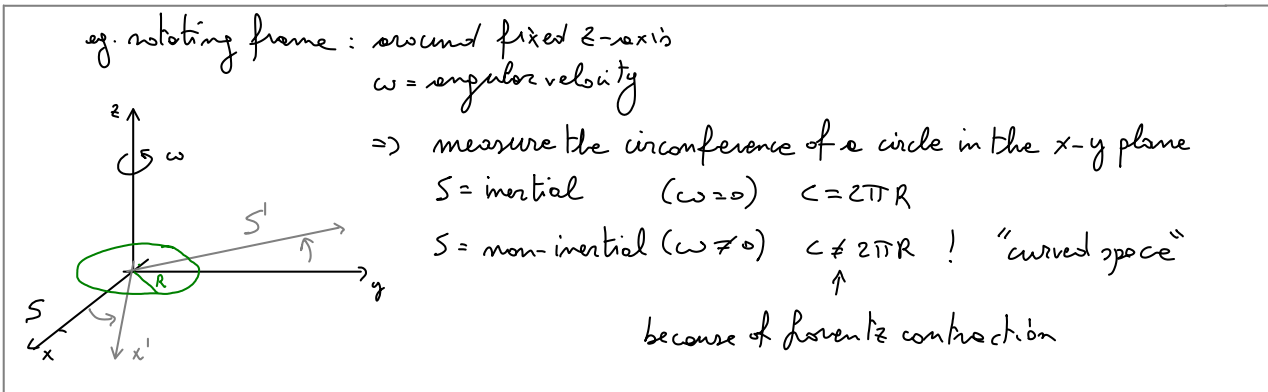 eg. rotating frame : around fixed z-axis
ω = angular velocity
=> measure the circonference of a circle in the x-y plane
S = inertial (ω=0) C = 2πR
S = non-inertial (ω ≠ 0) C ≠ 2πR ! "curved space"
↑
because of Lorentz contraction
z
ω
S'
R
y
S
x
x'